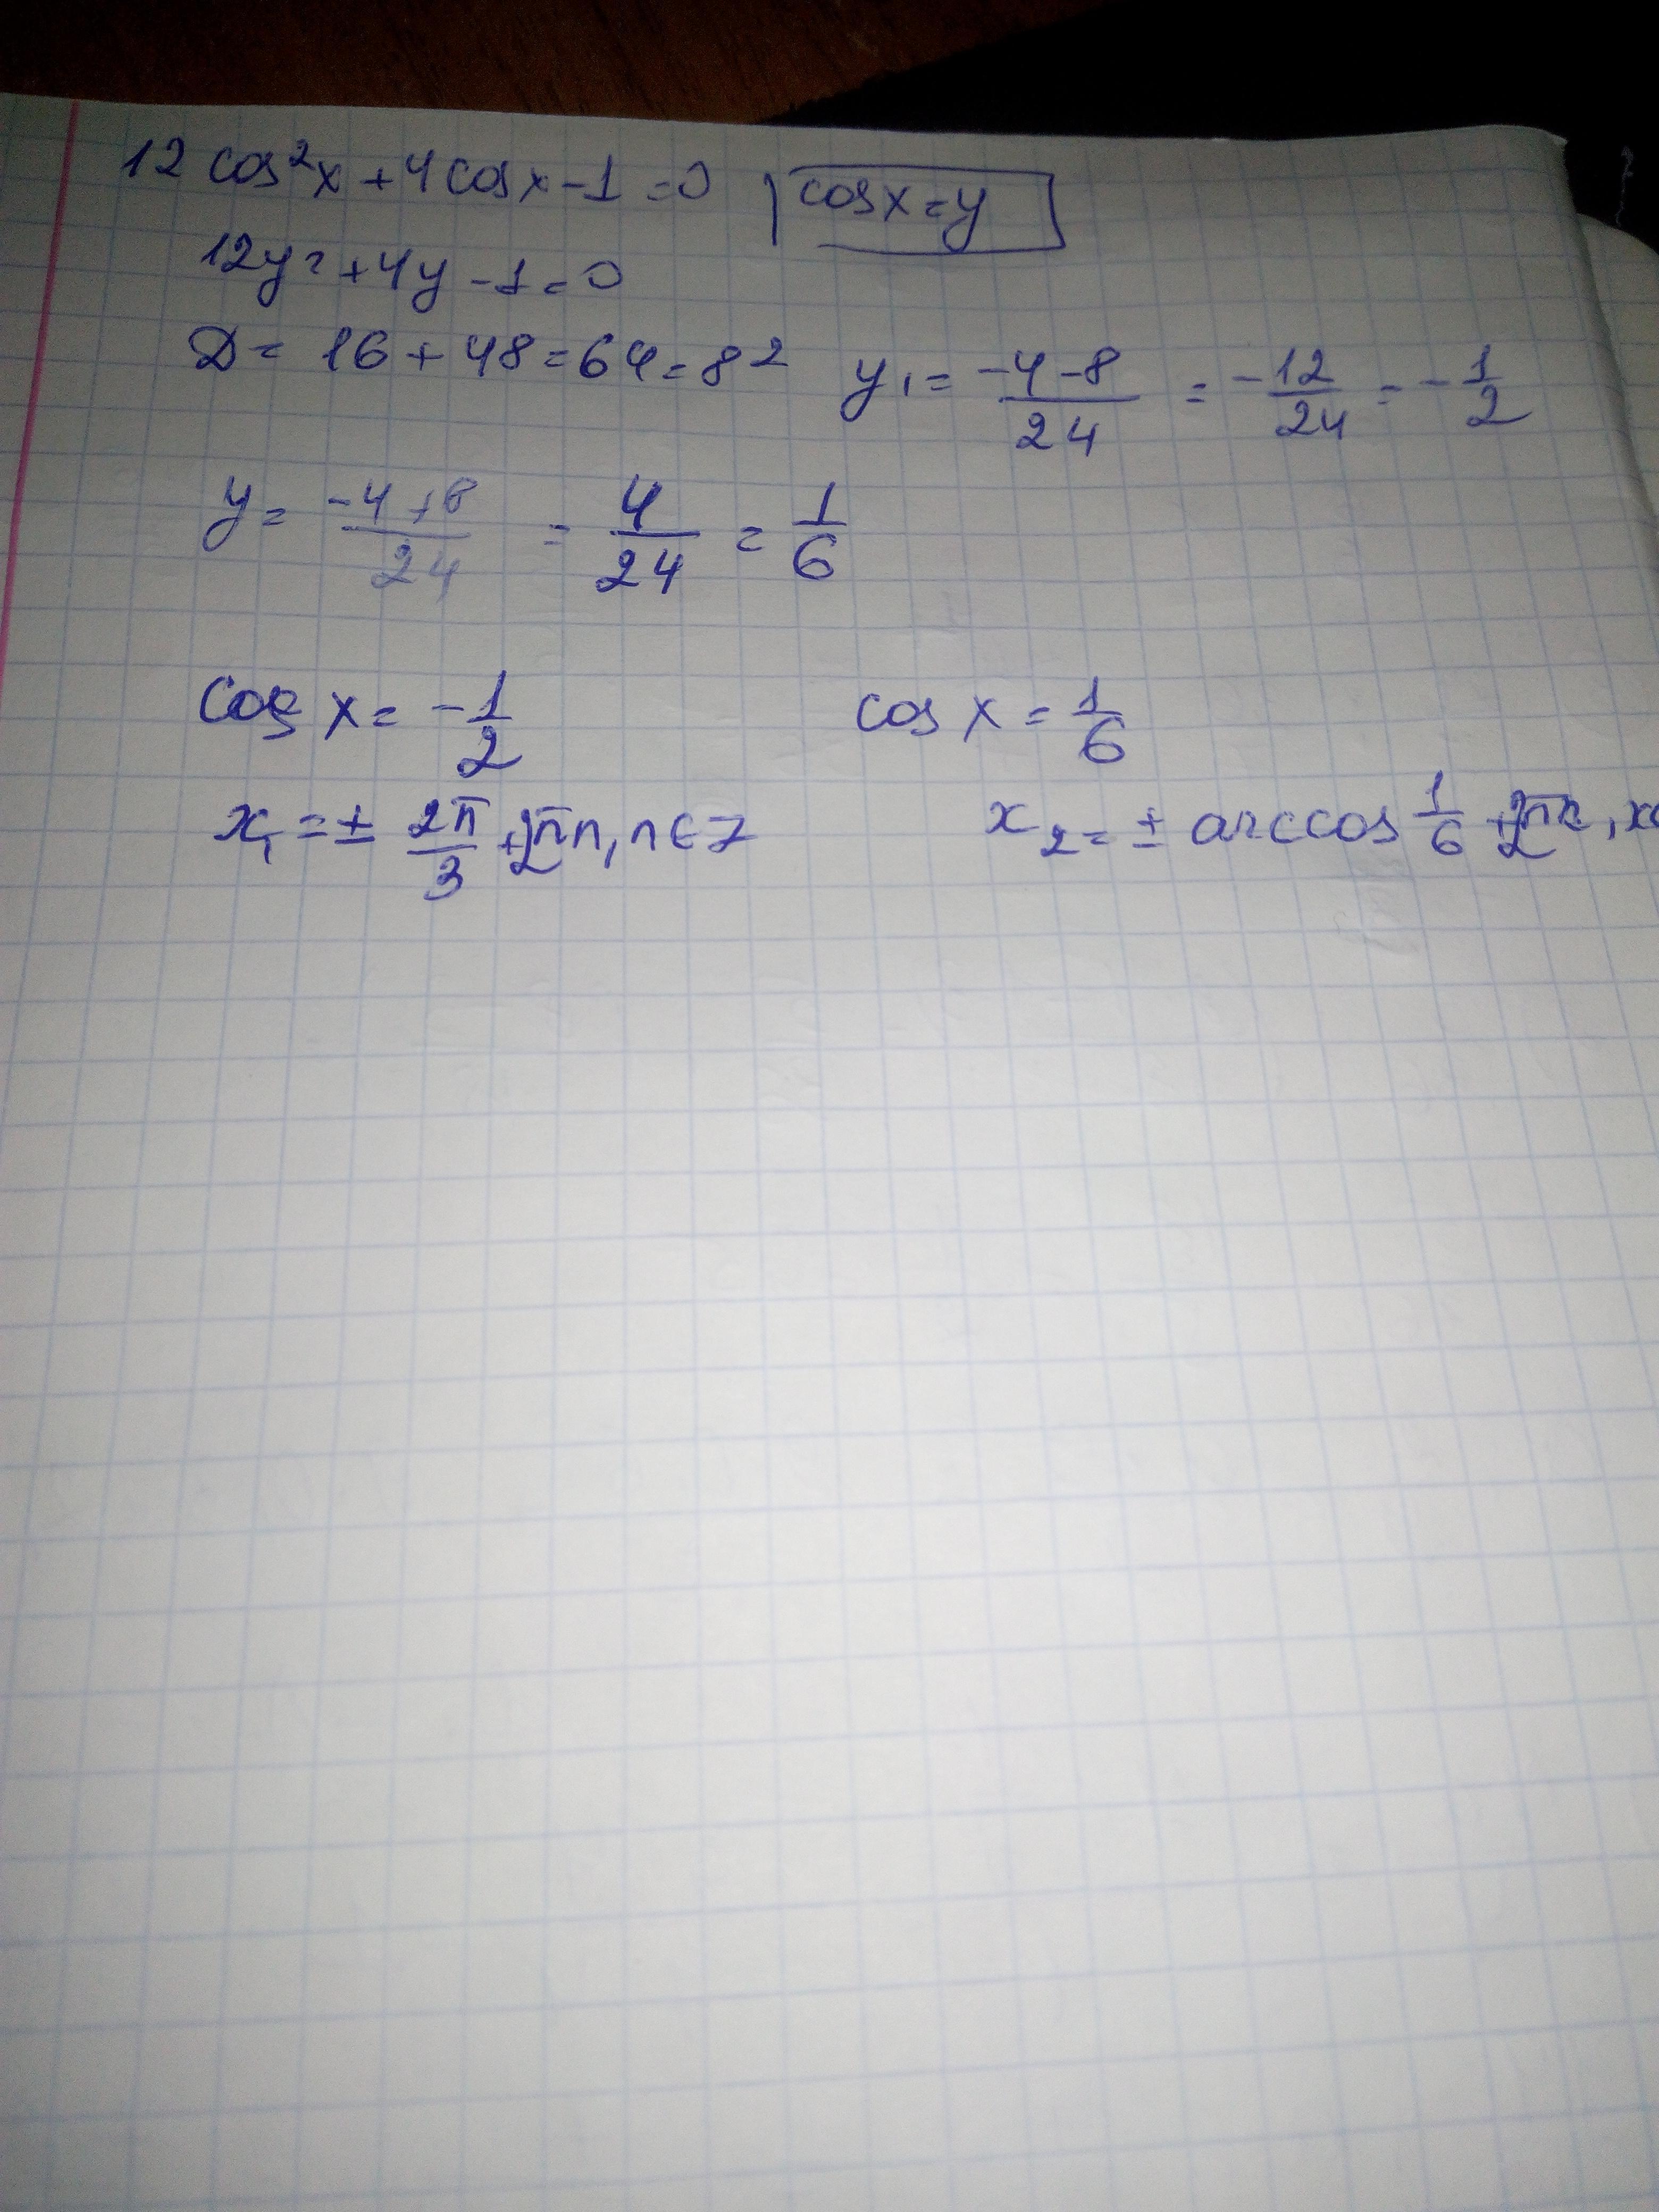 12 cos²x + 4 cos x - 1 = 0 cos x = y
12y² + 4y - 1 = 0
D = 16 + 48 = 64 = 8² y₁ = (-4-8)/24 = -12/24 = -1/2
y = (-4+8)/24 = 4/24 = 1/6
cos x = -1/2 cos x = 1/6
x₁ = ± 2π/3 + 2πn, n ∈ Z x₂ = ± arccos 1/6 + 2πk,